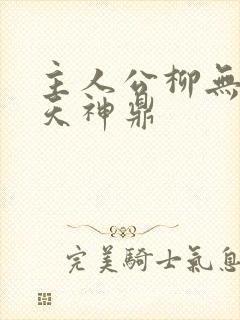 主人公柳無
天神鼎
完美騎士氣息